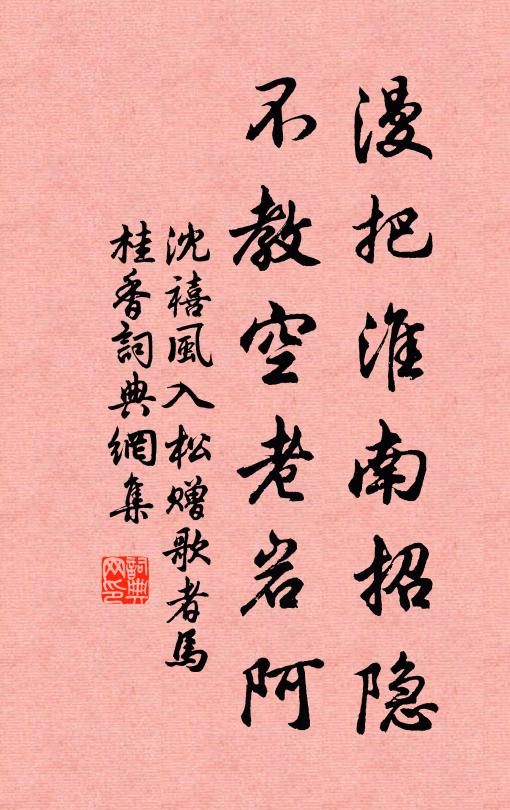 漫把淮南招隐
不教空老岩阿
沈禧風入松赠歌者馬
桂香詞典網集
詞典网印